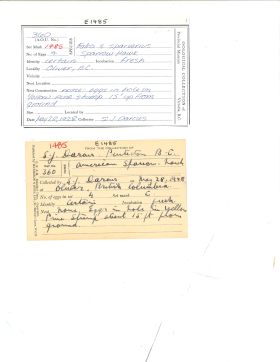 E1485
360
(A.O.U. No.)
Set Mark 1985 Falco s. sparverius
No. of Eggs 4 Sparrow Hawk
Identity certain Incubation Fresh
Locality Oliver, B.C.
Vicinity
Nest Location
Nest Construction none. Eggs in hole in
Yellow Pine stump 15' up from
ground
Size
Date May 28, 1928 Collector S.J. Darcus
OOLOGICAL COLLECTION of
Provincial Museum
Victoria, B.C.
1485
FROM THE COLLECTION OF
S.J. Darcus Penticton B.C.
360
American Sparrow Hawk
Collected by S.J. Darcus on May 28, 1928
at Oliver, British Columbia.
No. of eggs in set 4 Set mark C
Identity Certain Incubation fresh
Nest None, Eggs in hole in Yellow
Pine stump about 15 ft from
ground.